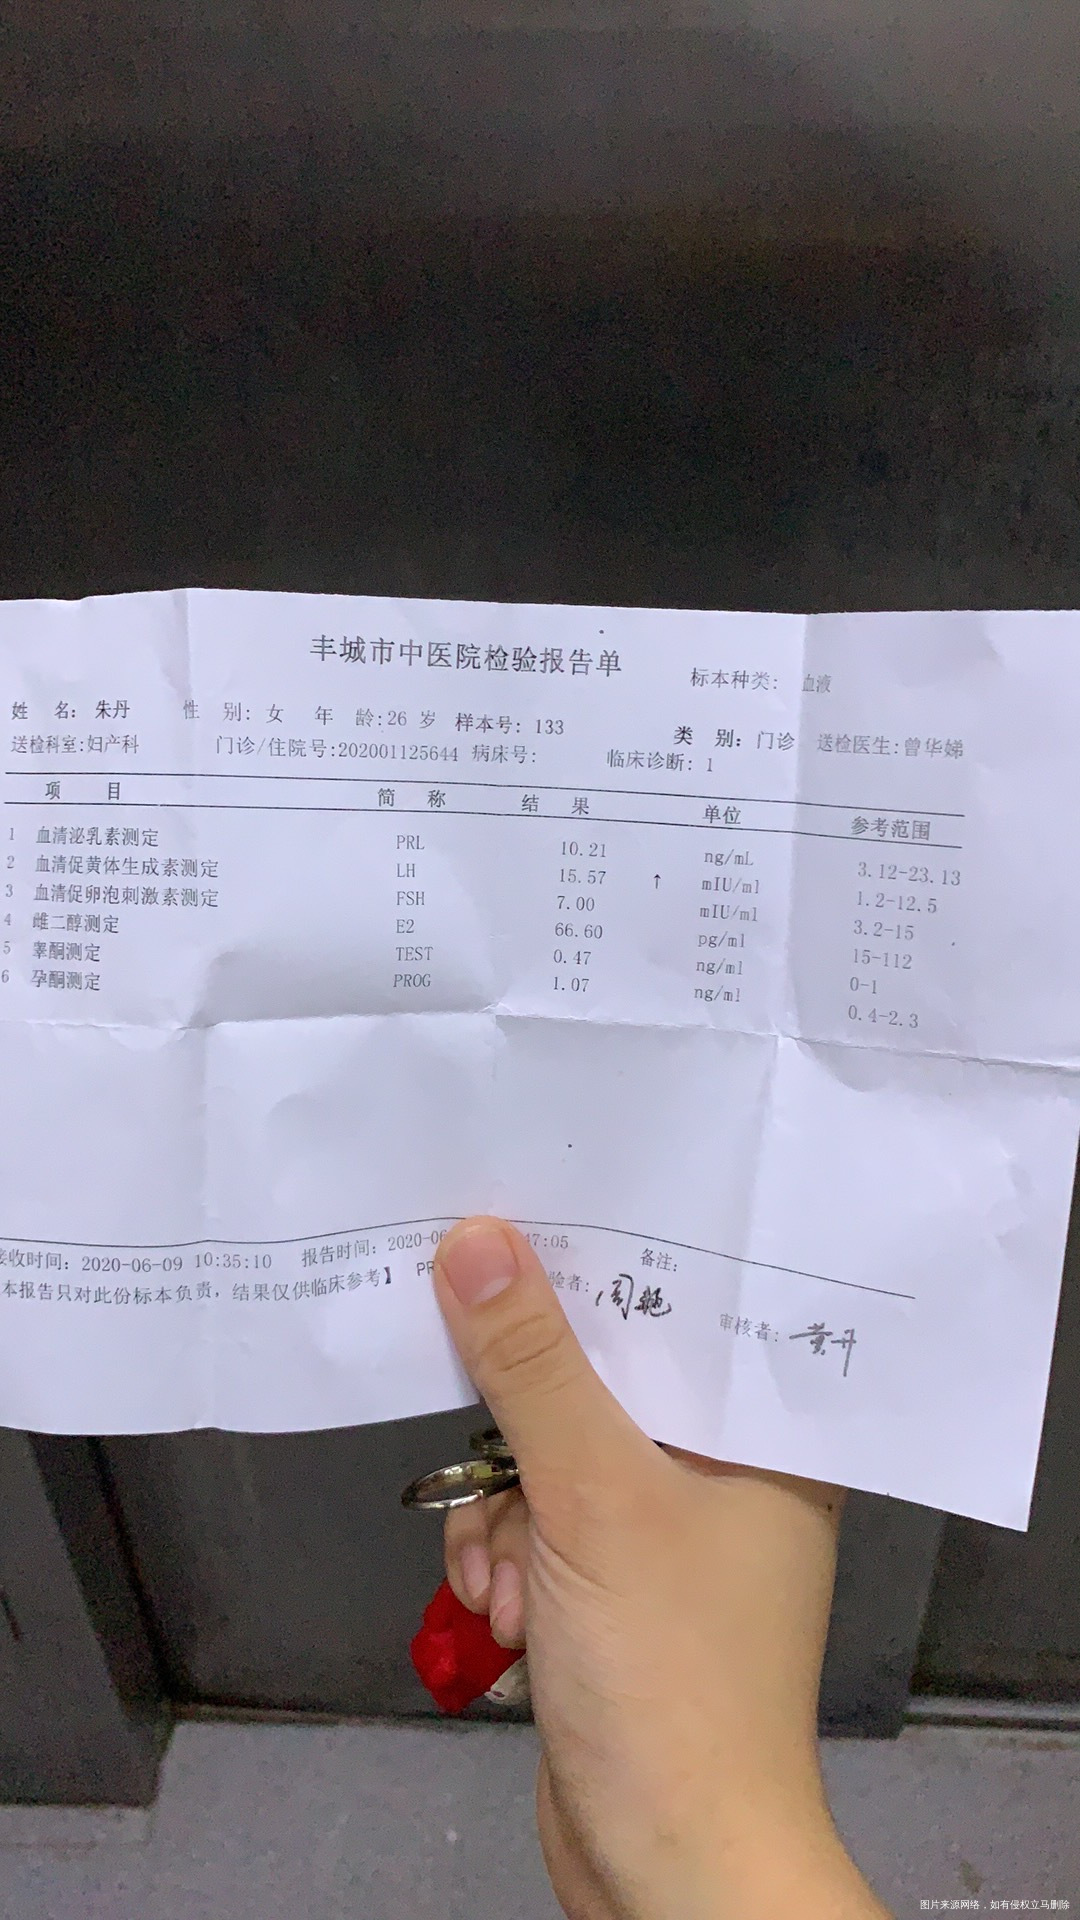 丰城市中医院检验报告单
标本种类: 血液
姓 名: 朱丹 性 别: 女 年 龄:26 岁 样本号: 133 类 别: 门诊 送检医生:曾华娣
送检科室:妇产科 门诊/住院号:202001125644 病床号: 临床诊断: 1
项 目 简 称 结 果 单位 参考范围
1 血清泌乳素测定 PRL 10.21 ng/mL 3.12-23.13
2 血清促黄体生成素测定 LH 15.57 ↑ mIU/ml 1.2-12.5
3 血清促卵泡刺激素测定 FSH 7.00 mIU/ml 3.2-15
4 雌二醇测定 E2 66.60 pg/ml 15-112
5 睾酮测定 TEST 0.47 ng/ml 0-1
6 孕酮测定 PROG 1.07 ng/ml 0.4-2.3
接收时间: 2020-06-09 10:35:10 报告时间: 2020-06 47:05 备注:
本报告只对此份标本负责，结果仅供临床参考】 PR 验者: 周 审核者: 黄丹
图片来源网络，如有侵权立马删除